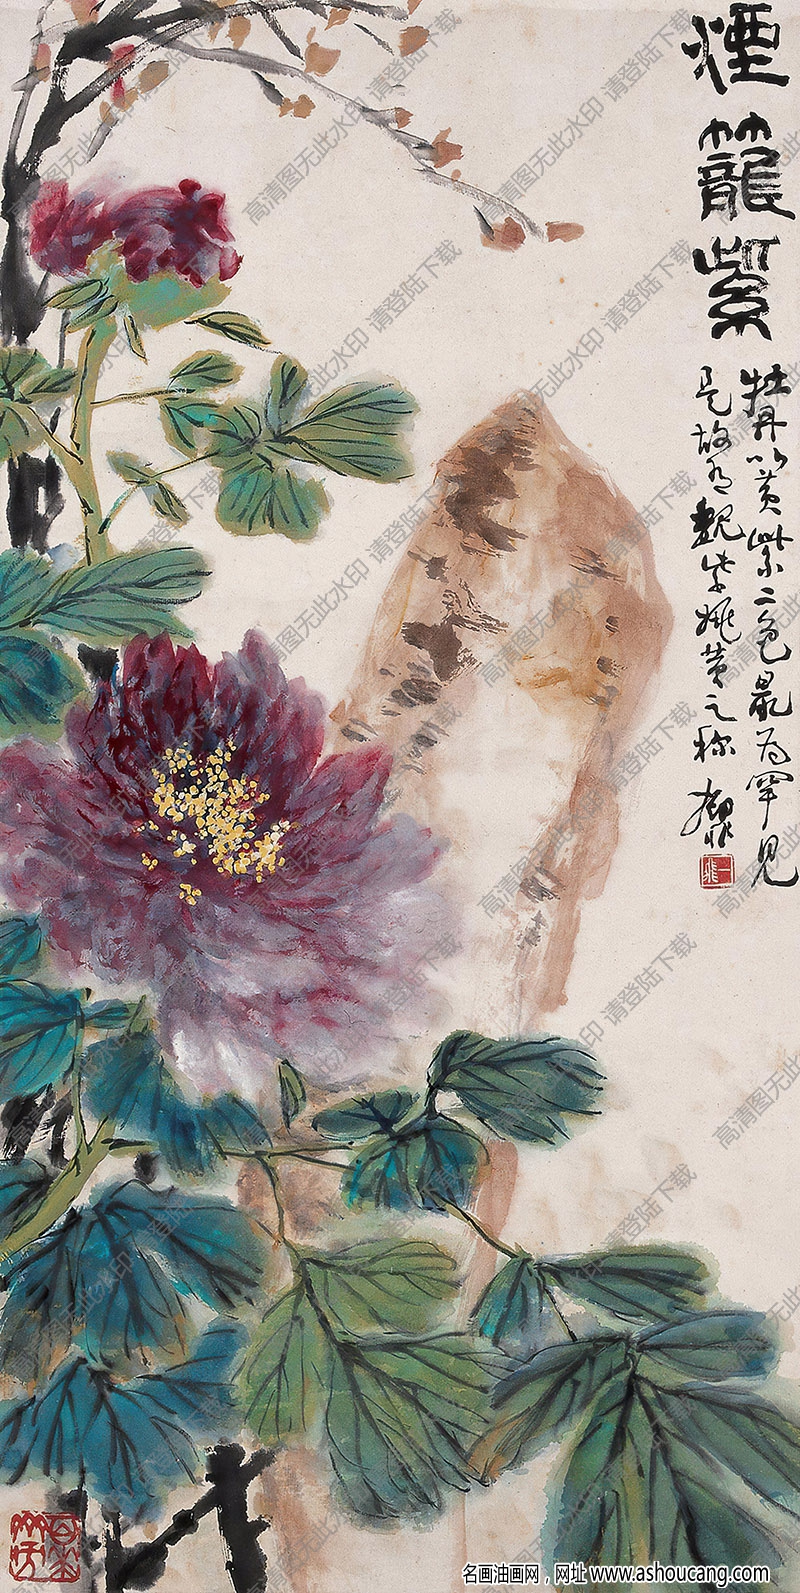 煙籠紫
牡丹以黃紫二色最为罕見
是故有魏紫姚黃之称
一飛
高清图无此水印 请登陆下载
名画油画网，网址 www.ashoucang.com